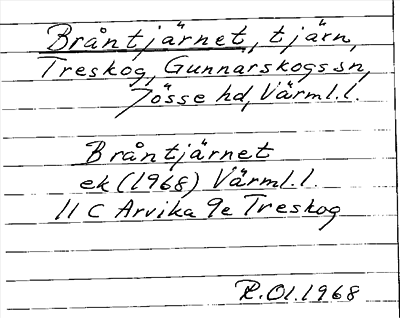 Bråntjärnet, tjärn,
Treskog, Gunnarskogs sn,
Jösse hd, Värml.l.
Bråntjärnet
ek (1968) Värml.l.
11 C Arvika 9e Treskog
R.Ol.1968